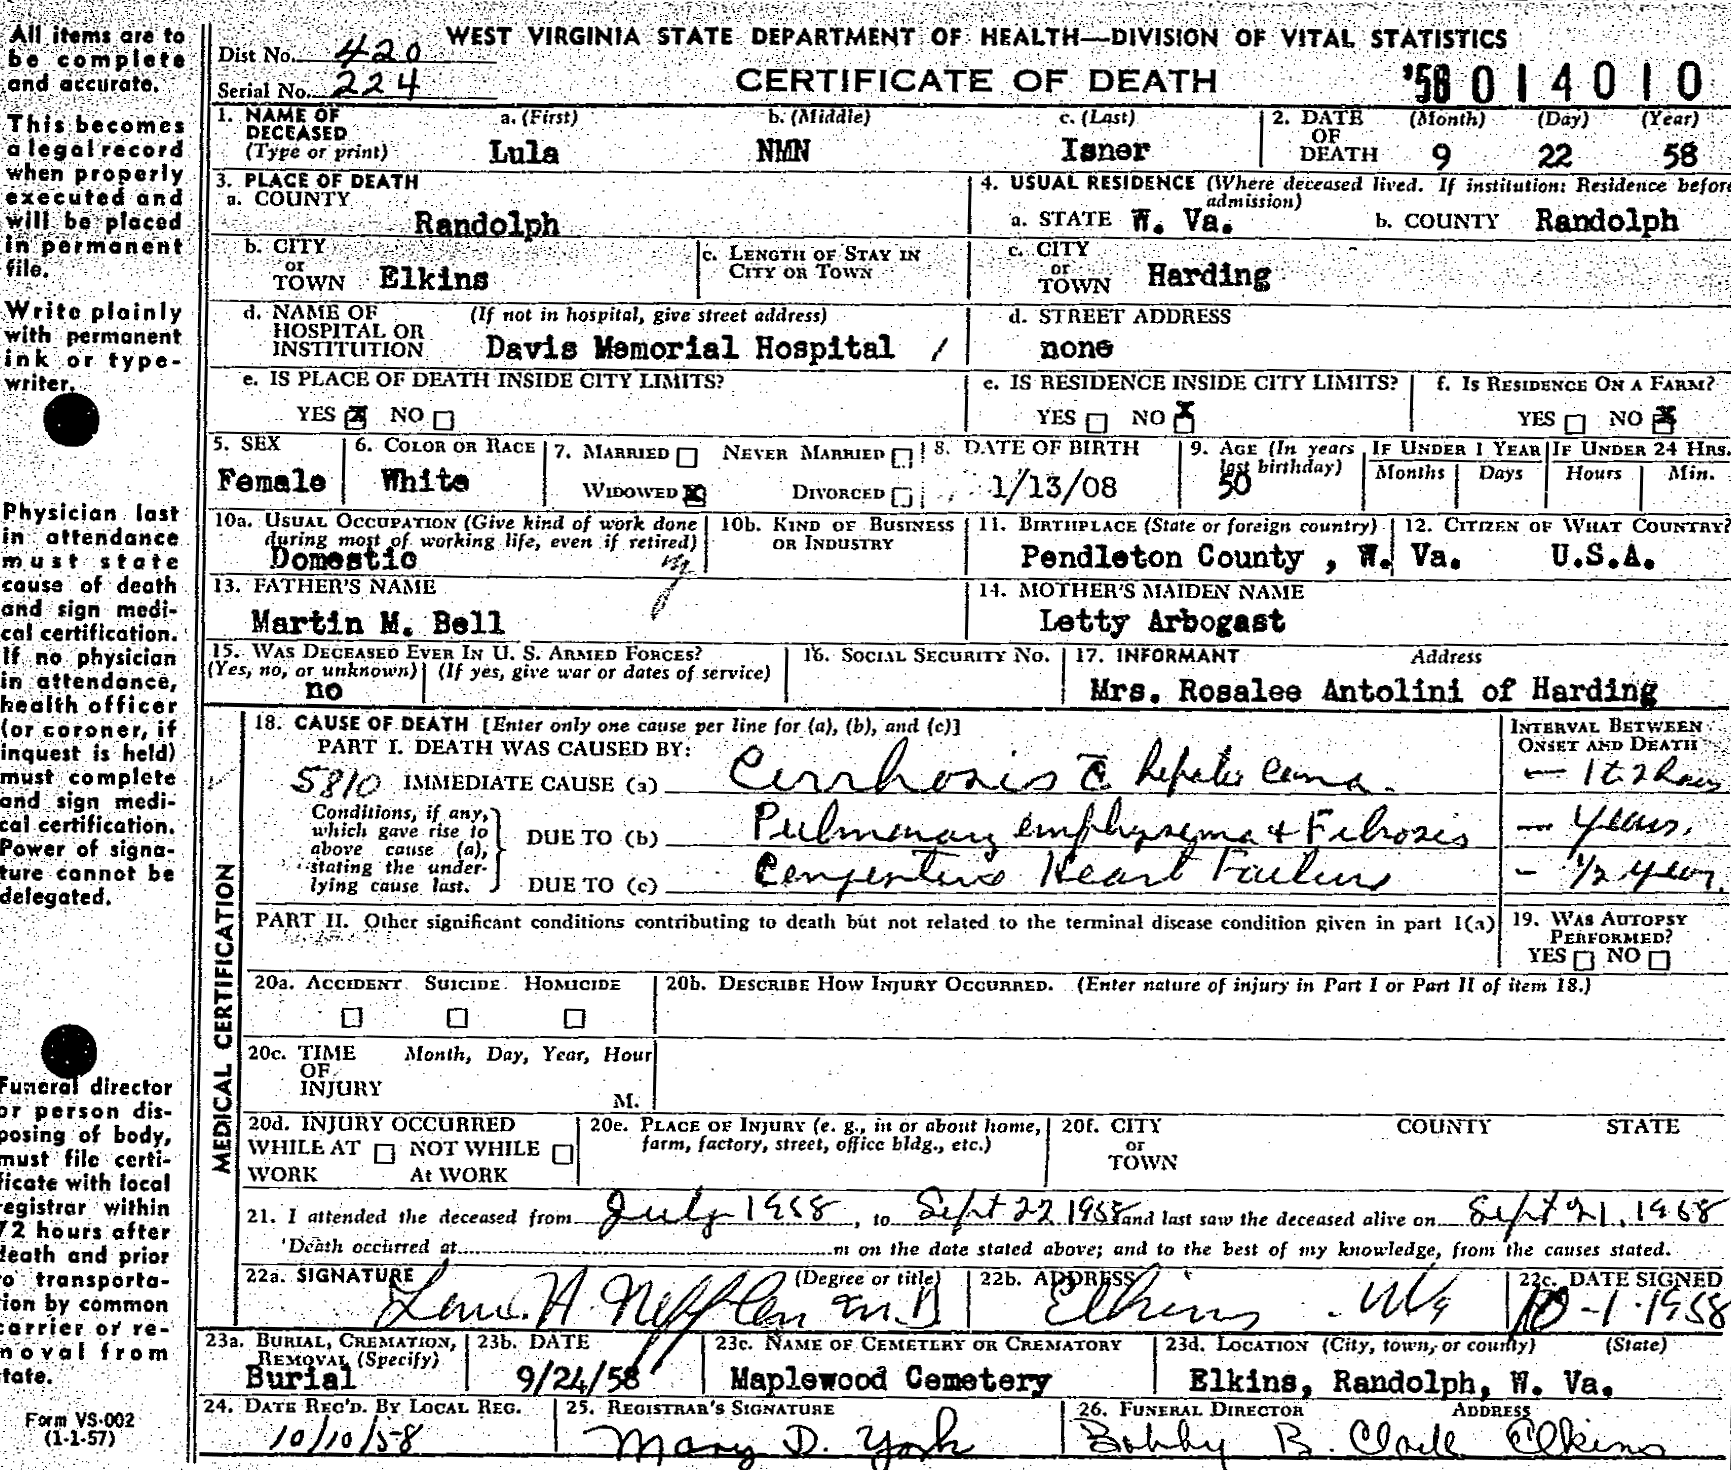 All items are to
be complete
and accurate.
This becomes
a legal record
when properly
executed and
will be placed
in permanent
file.
Write plainly
with permanent
ink or type-
writer.
Physician last
in attendance
must state
cause of death
and sign medi-
cal certification.
If no physician
in attendance,
health officer
(or coroner, if
inquest is held)
must complete
and sign medi-
cal certification.
Power of signa-
ture cannot be
delegated.
Funeral director
or person dis-
posing of body,
must file certi-
ficate with local
registrar within
72 hours after
death and prior
to transporta-
tion by common
carrier or re-
moval from
state.
Form VS-002
(1-1-57)
WEST VIRGINIA STATE DEPARTMENT OF HEALTH—DIVISION OF VITAL STATISTICS
Dist No. 420
Serial No. 224
CERTIFICATE OF DEATH
'58 014010
1. NAME OF DECEASED (Type or print) a. (First) b. (Middle) c. (Last)
Lula NMN Isner
2. DATE OF DEATH (Month) (Day) (Year)
9 22 58
3. PLACE OF DEATH
a. COUNTY
Randolph
4. USUAL RESIDENCE (Where deceased lived. If institution: Residence before admission)
a. STATE W. Va. b. COUNTY Randolph
b. CITY or TOWN Elkins
c. LENGTH OF STAY IN CITY OR TOWN
c. CITY or TOWN Harding
d. NAME OF HOSPITAL OR INSTITUTION (If not in hospital, give street address)
Davis Memorial Hospital /
d. STREET ADDRESS
none
e. IS PLACE OF DEATH INSIDE CITY LIMITS?
YES X NO
e. IS RESIDENCE INSIDE CITY LIMITS?
YES NO X
f. IS RESIDENCE ON A FARM?
YES NO X
5. SEX
Female
6. COLOR OR RACE
White
7. MARRIED NEVER MARRIED
WIDOWED X DIVORCED
8. DATE OF BIRTH
1/13/08
9. AGE (In years last birthday)
50
IF UNDER 1 YEAR
Months Days
IF UNDER 24 HRS.
Hours Min.
10a. USUAL OCCUPATION (Give kind of work done
during most of working life, even if retired)
Domestic
10b. KIND OF BUSINESS OR INDUSTRY
11. BIRTHPLACE (State or foreign country)
Pendleton County , W. Va.
12. CITIZEN OF WHAT COUNTRY?
U.S.A.
13. FATHER'S NAME
Martin M. Bell
14. MOTHER'S MAIDEN NAME
Letty Arbogast
15. WAS DECEASED EVER IN U. S. ARMED FORCES?
(Yes, no, or unknown) (If yes, give war or dates of service)
no
16. SOCIAL SECURITY NO.
17. INFORMANT Address
Mrs. Rosalee Antolini of Harding
MEDICAL CERTIFICATION
18. CAUSE OF DEATH [Enter only one cause per line for (a), (b), and (c)]
INTERVAL BETWEEN ONSET AND DEATH
PART I. DEATH WAS CAUSED BY:
5810 IMMEDIATE CAUSE (a) Cirrhosis c̄ hepatic coma. — 1 to 2 hours
Conditions, if any,
which gave rise to
above cause (a),
stating the under-
lying cause last.
DUE TO (b) Pulmonary emphysema + Fibrosis — years.
DUE TO (c) Congestive Heart Failure - 1/2 year.
PART II. Other significant conditions contributing to death but not related to the terminal disease condition given in part I(a)
19. WAS AUTOPSY PERFORMED?
YES NO
20a. ACCIDENT SUICIDE HOMICIDE
20b. DESCRIBE HOW INJURY OCCURRED. (Enter nature of injury in Part I or Part II of item 18.)
20c. TIME OF INJURY Month, Day, Year, Hour
M.
20d. INJURY OCCURRED
WHILE AT WORK NOT WHILE At WORK
20e. PLACE OF INJURY (e. g., in or about home,
farm, factory, street, office bldg., etc.)
20f. CITY or TOWN COUNTY STATE
21. I attended the deceased from July 1958, to Sept 22 1958 and last saw the deceased alive on Sept 21, 1958
Death occurred at m on the date stated above; and to the best of my knowledge, from the causes stated.
22a. SIGNATURE (Degree or title)
H. Nefflen M.D
22b. ADDRESS
Elkins. W Va
22c. DATE SIGNED
10-1-1958
23a. BURIAL, CREMATION, REMOVAL (Specify)
Burial
23b. DATE
9/24/58
23c. NAME OF CEMETERY OR CREMATORY
Maplewood Cemetery
23d. LOCATION (City, town, or county) (State)
Elkins, Randolph, W. Va.
24. DATE REC'D. BY LOCAL REG.
10/10/58
25. REGISTRAR'S SIGNATURE
Mary D. York
26. FUNERAL DIRECTOR ADDRESS
Bobby B. Elkins